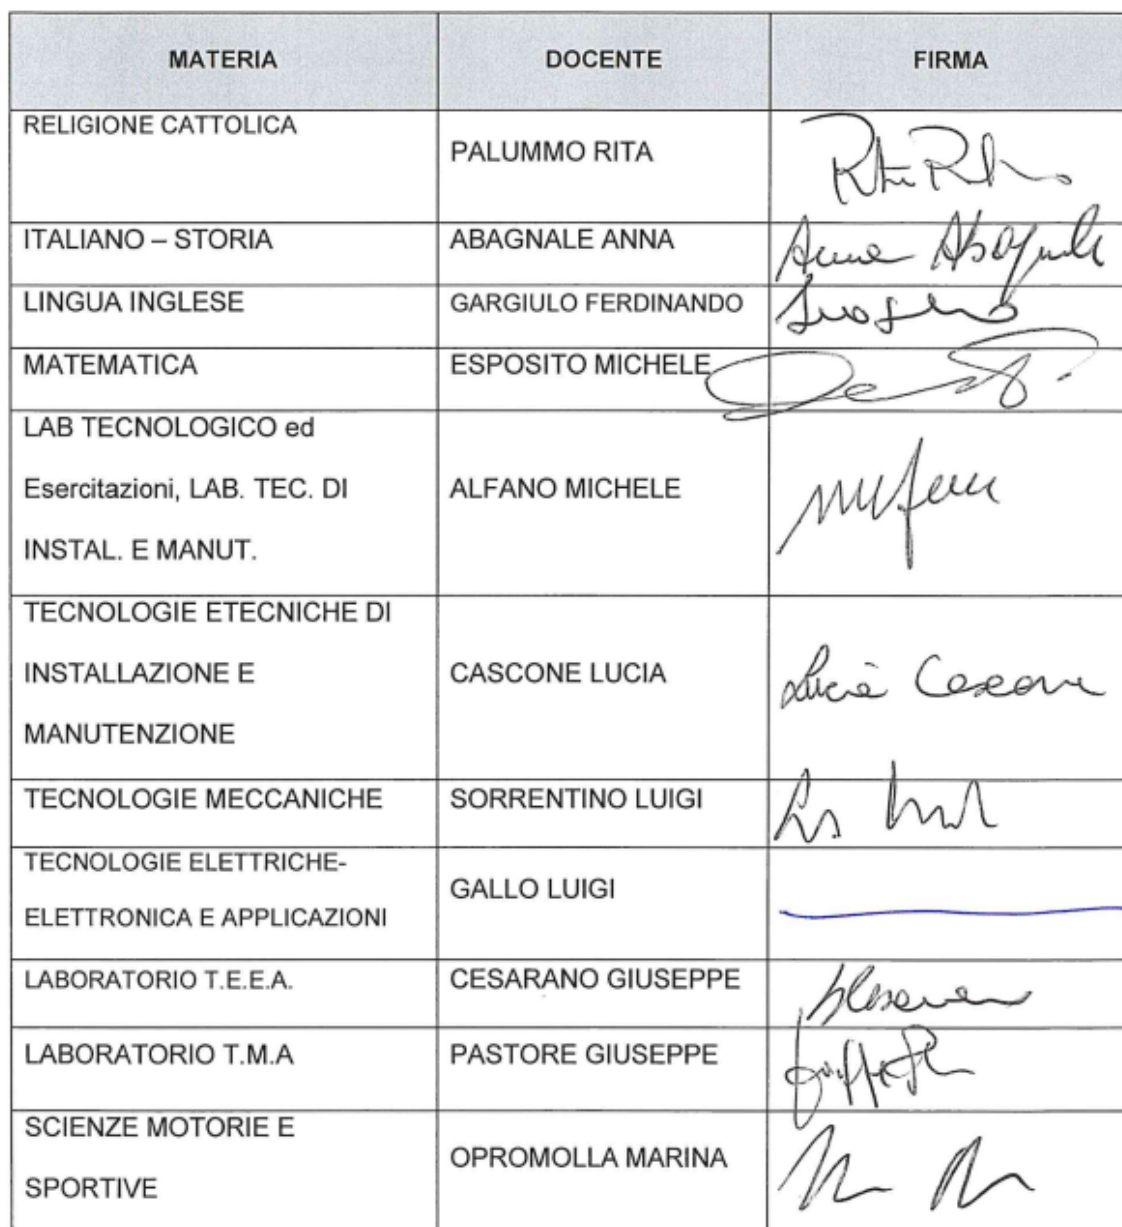 MATERIA DOCENTE FIRMA
RELIGIONE CATTOLICA
PALUMMO RITA
ITALIANO – STORIA ABAGNALE ANNA Anna Abagnale
LINGUA INGLESE GARGIULO FERDINANDO
MATEMATICA ESPOSITO MICHELE
LAB TECNOLOGICO ed
Esercitazioni, LAB. TEC. DI ALFANO MICHELE
INSTAL. E MANUT.
TECNOLOGIE ETECNICHE DI
INSTALLAZIONE E CASCONE LUCIA Lucia Cascone
MANUTENZIONE
TECNOLOGIE MECCANICHE SORRENTINO LUIGI
TECNOLOGIE ELETTRICHE-
GALLO LUIGI
ELETTRONICA E APPLICAZIONI
LABORATORIO T.E.E.A. CESARANO GIUSEPPE
LABORATORIO T.M.A PASTORE GIUSEPPE
SCIENZE MOTORIE E
OPROMOLLA MARINA
SPORTIVE